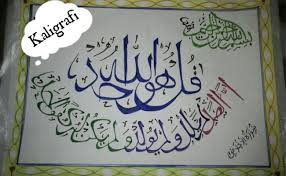 Kaligrafi
بسم الله الرحمن الرحيم
قل هو الله احد
الله الصمد
لم يلد ولم يولد ولم يكن له